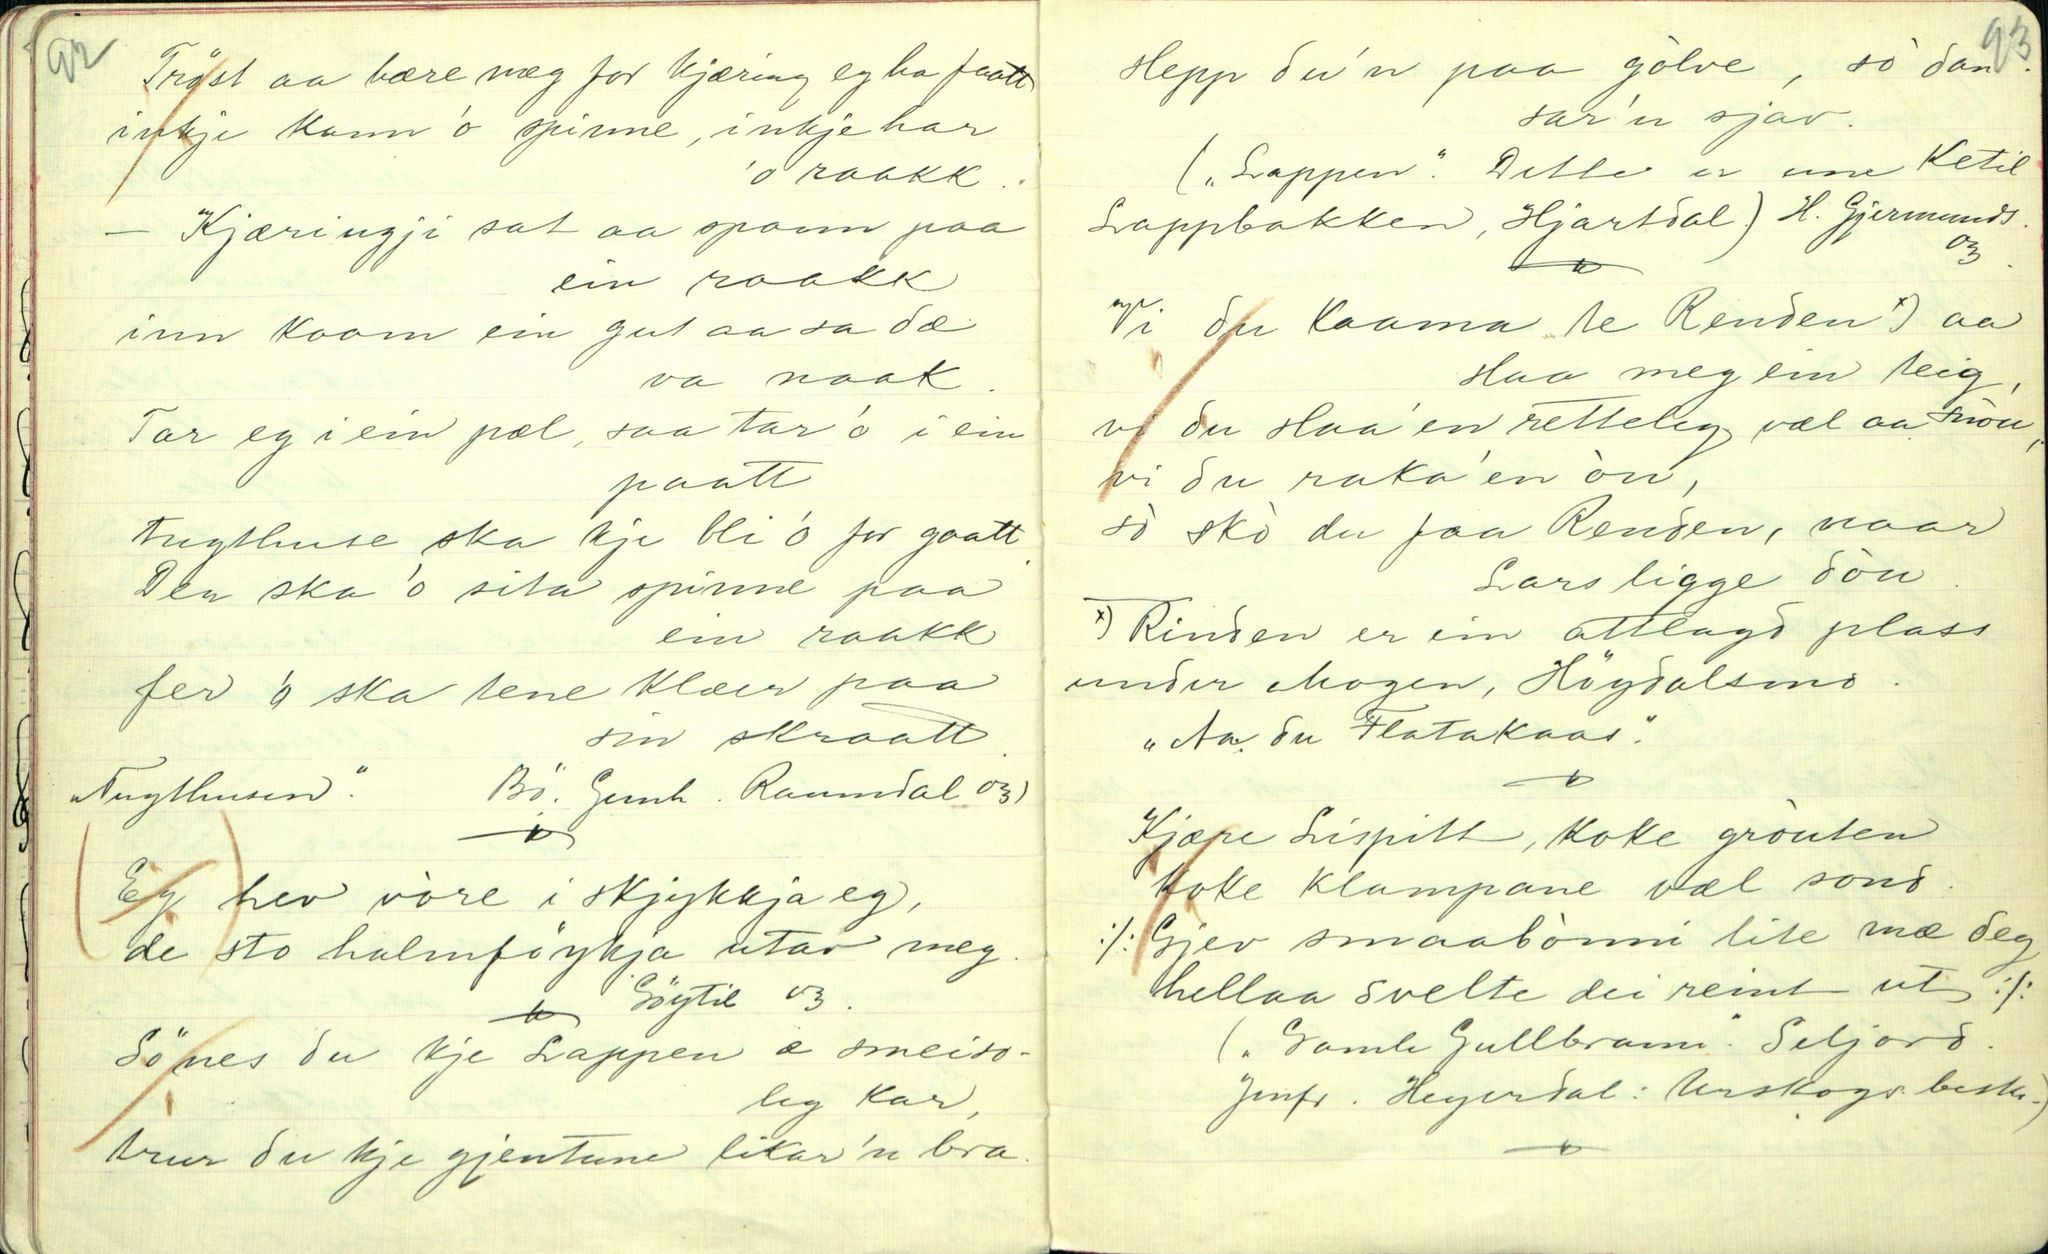 92
Tröst aa bære meg for kjæring eg ha faatt
inkje kann 'o spinne, inkje har
'o raakk.
— Kjæringji sat aa spann paa
ein raakk
inn kaam ein gut aa sa dæ
va naak.
Tar eg i ein pæl, saa tar 'ó i ein
paatt
tugthuse ska kje bli 'ó for gaatt.
Der ska 'ó sita spinne paa
ein raakk
fer 'o ska tene klæer paa
sin skraatt.
„Tugthusen“. Bö. Gunh. Raumdal 03)
Eg hev vòre i skjykkja eg,
de sto halmföykja utav meg.
Göytil 03.
Sönes du kje Lappen æ smeiso-
leg kar,
trur du kje gjentune likar'n bra.
93
Slepp du'n paa gòlve, sò dan-
sar'n sjav.
(„Lappen“. Dette er une Ketil
Lappbakken, Hjartdal.) H. Gjermunds.
03.
Vi du kaama te Renden x) aa
slaa meg ein teig,
vi du slaa'en retteleg væl aa snòu,
vi du raka'en òu,
sò skò du faa Renden, naar
Lars ligge dòu.
x) Rinden er ein attlagd plass
under Mogen, Höydalsmo.
„Aa du Flatakaas“.
Kjære Lispitt, koke gròuten
koke klumpane væl sond.
:/: Gjev smaabònni lite mæ deg
hellaa svelte dei reint ut :/:
(„Gamle Gullbrann“ Seljord.
Jmfr. Heyerdal: Urskogs beskr.)